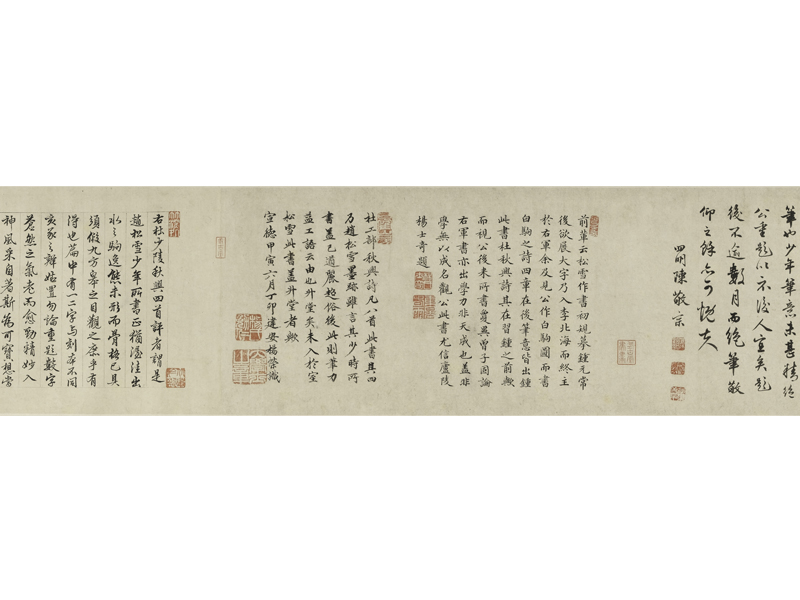 筆如少年筆意未甚精絕
公重題以示後人宜矣題
後不逾數月而絕筆敬
仰之餘為之慨夫
四明陳敬宗
前輩云松雪作書初規摹鍾元常
後欲展大字乃入李北海而終主
於右軍余及見公作白駒圖而書
白駒之詩四章在後筆意皆出鍾
此書杜秋興詩其在習鍾之前歟
而視公後來所書夐異曾子固論
右軍書亦出學力非天成也蓋非
學無以成名觀公此書尤信廬陵
楊士奇題
杜工部秋興詩凡八首此書其四
乃趙松雪墨跡雖言其少時所
書蓋已遒麗超俗後此則筆力
益工語云由也升堂矣未入於室
松雪此書蓋升堂者歟
宣德甲寅六月丁卯建安楊榮識
右杜少陵秋興四首評者謂是
趙松雪少年所書正猶渥洼出
水之駒逸態未形而骨格已具
須假九方皋之目觀之庶乎有
得也篇中有一二字与刻本不同
亥豕之辨姑置勿論重題數字
蒼然之氣老而愈勁精妙入
神風采自著斯為可寶想當